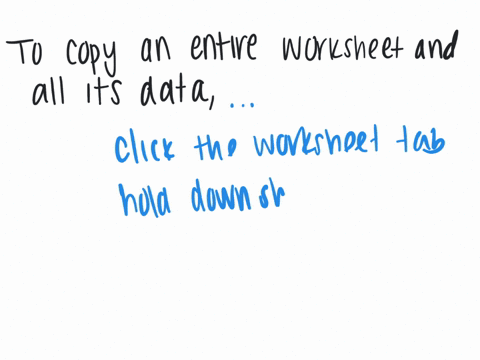 To copy an entire worksheet and
all its data, ...
click the worksheet tab
hold down sh